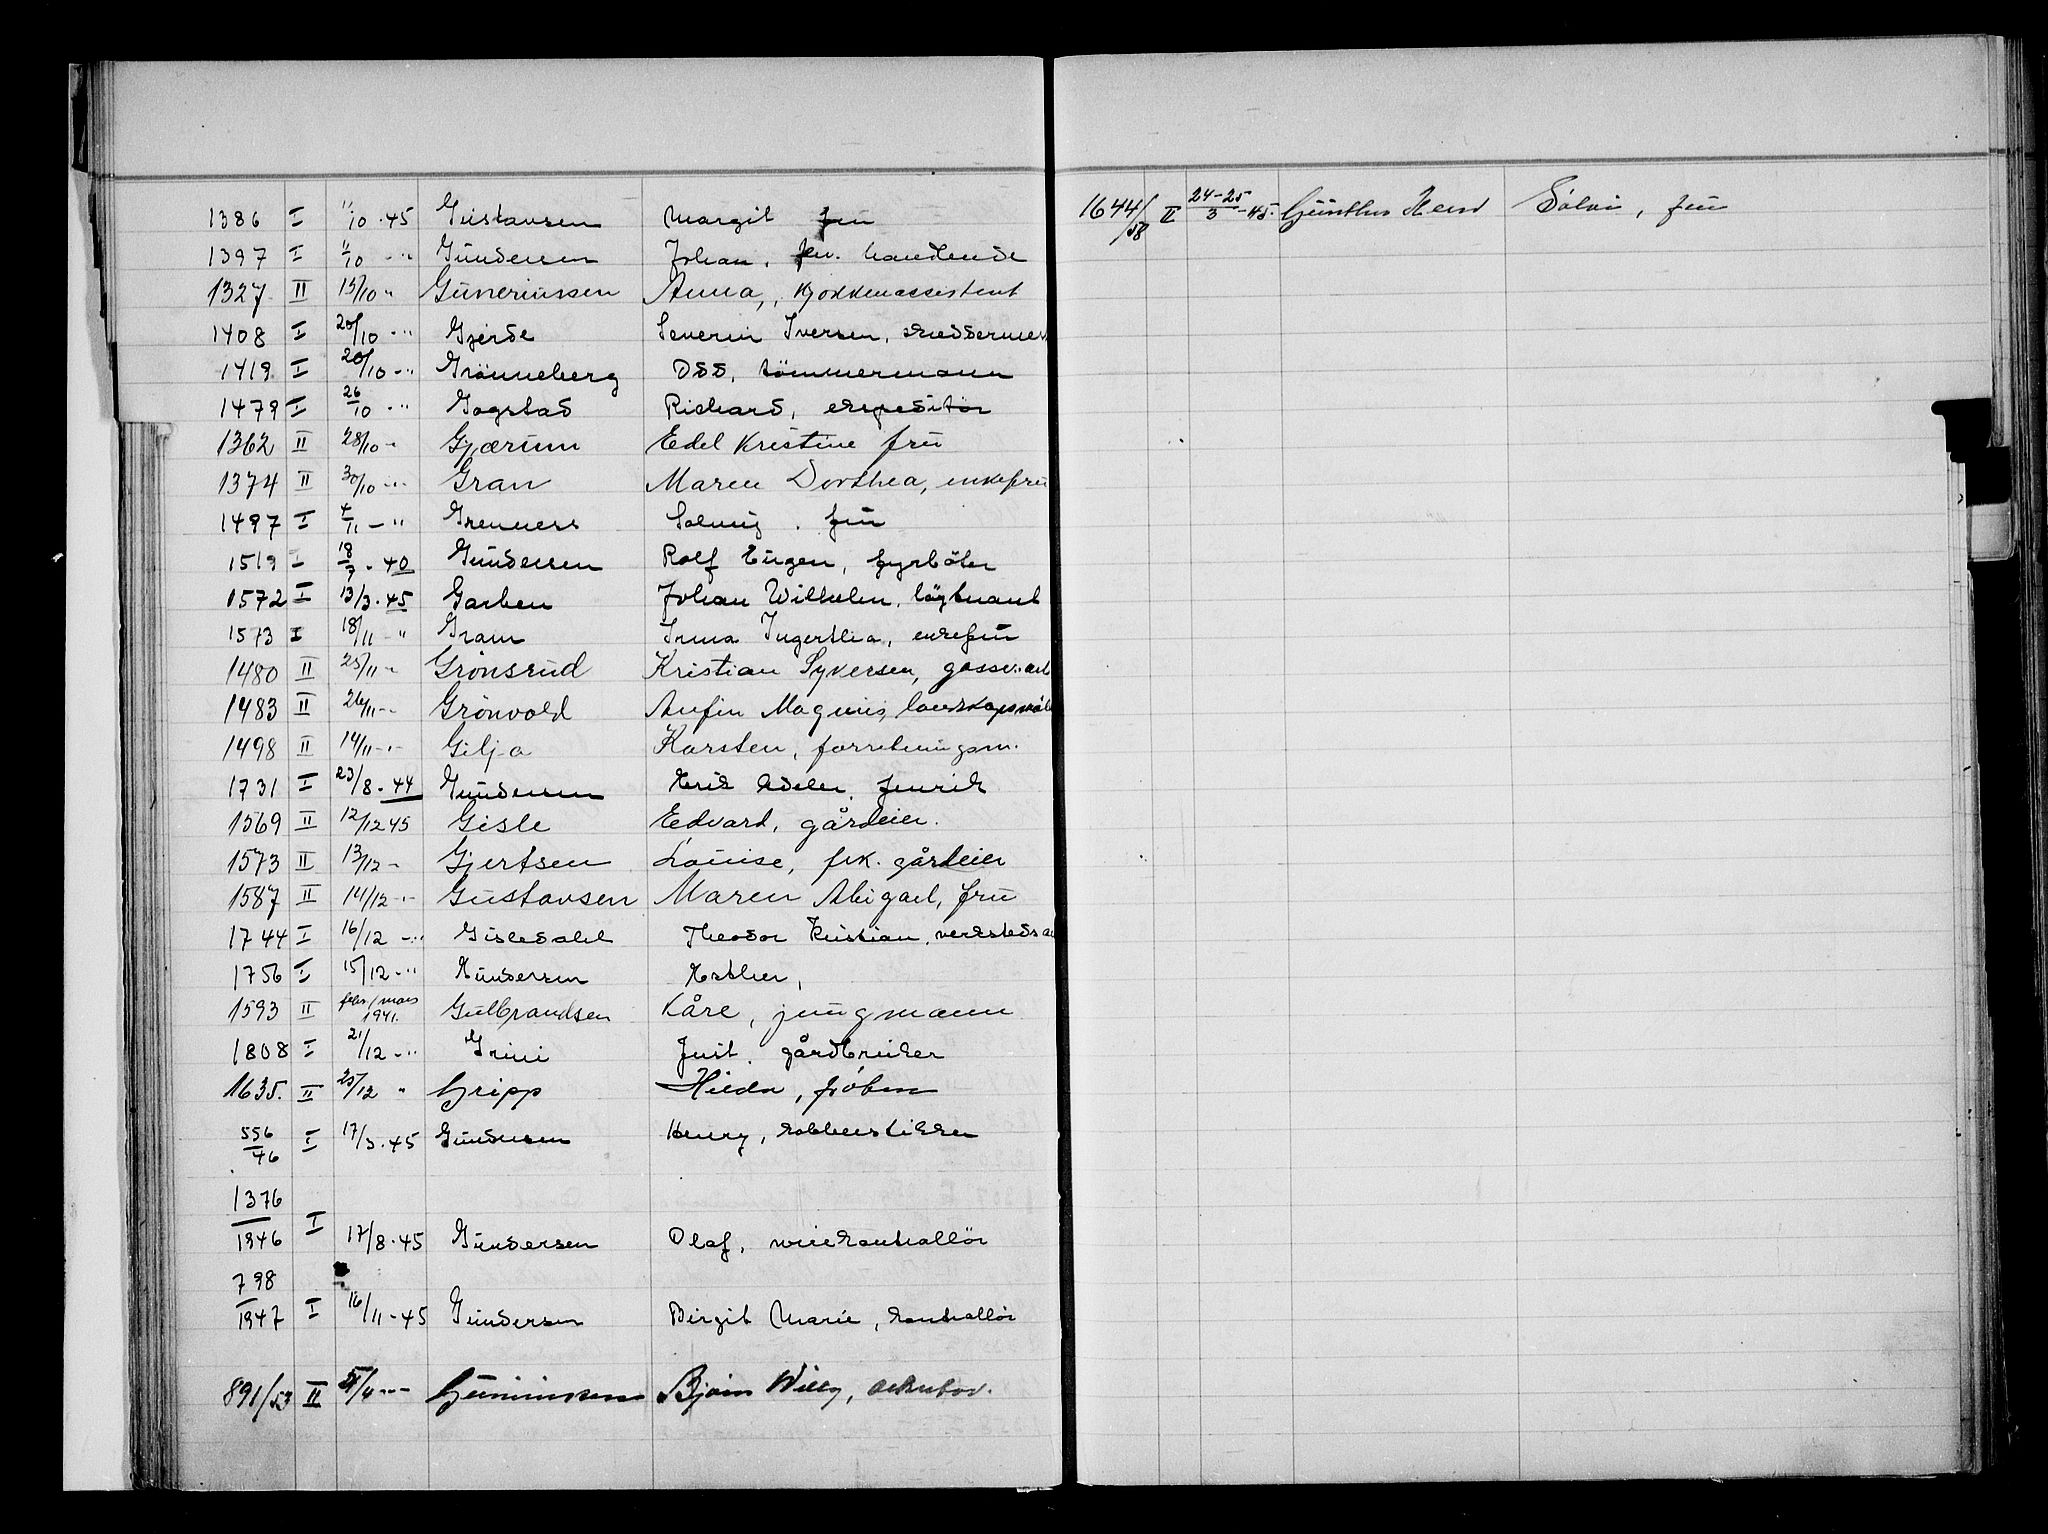 1386 I 11/10 · 45 Gustavsen Margit fru
1397 I 11/10 - " Gundersen Johan, fhv. handlende
1327 II 15/10 " Guneriussen Anna, kjøkkenassistent
1408 I 20/10 - " Gjerde Severin Iversen, skreddermes
1419 I 20/10 - " Grönneberg Odd, tömmermann
1479 I 26/10 - " Gogstad Richard, ekspeditör
1362 II 28/10 - Gjærum Edel Kristine fru
1374 II 30/10 - " Gran Maren Dorthea, enkefru
1497 I 4/11 - " Grenness Solveig, fru
1519 I 18/7 - 40 Gundersen Rolf Eugen, fyrböter
1572 I 13/3 · 45 Garben Johan Wilhelm, löytnant
1573 I 18/11 - " Gram Irma Ingerthea, enkefru
1480 II 25/11 " Grønsrud Kristian Syversen, gassv.arb
1483 II 26/11 - Grønvold Anfin Magnus, landskapsmål
1498 II 14/11 - " Gilja Karsten, forretningsm.
1731 I 23/8 · 44 Gundersen Erik Adeler, fenrik
1569 II 12/12 45 Gisle Edvard, gårdeier.
1573 II 13/12 - Gjertsen Louise, frk. gårdeier
1587 II 14/12 - " Gustavsen Maren Abigael, fru
1744 I 16/12 - " Gisledahl Theodor Kristian, verkstedsa
1756 I 15/12 - " Gundersen Esther,
1593 II febr/mars 1941. Gulbrandsen Kåre, jungmann
1808 I 21/12 - " Grini Just, gårdbruker
1635. II 25/12 " Gripp Huda, frøken
556/46 I 17/3 · 45 Gundersen Henry, kobberstikker
1376/1946 I 17/8 · 45 Gundersen Olaf, kontrollör
798/1947 I 16/11 - 45 Gundersen Birgit Marie, kontrollör
891/53 II 5/4 - " Bjørn Willy,
1644/58 II 24-25/3 - 45. Günther Sølvi, fru